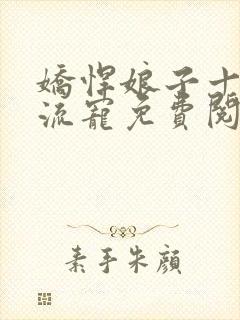 嬌悍娘子十
流寵免費閱
素手朱顔